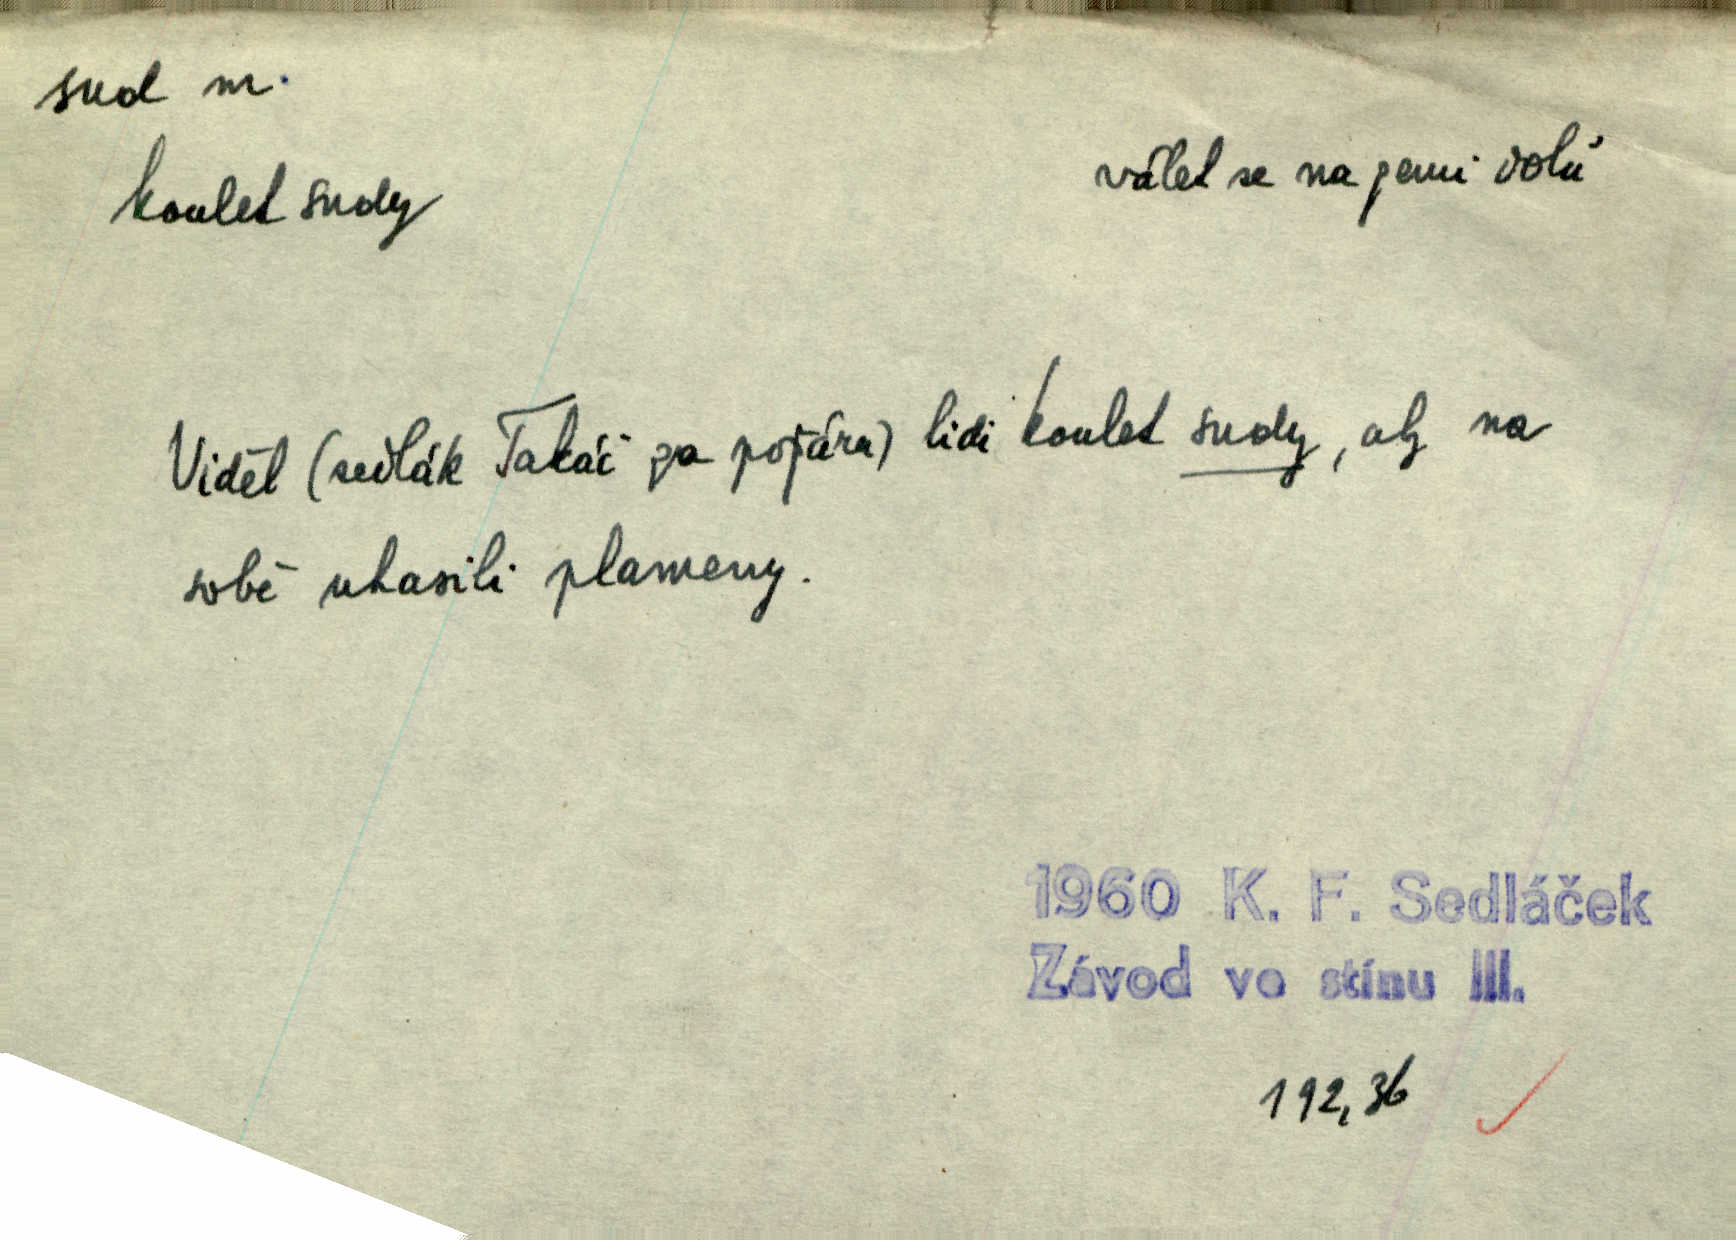 sud m.
koulet sudy
válet se na zemi dolů
Viděl (sedlák Takáč za požáru) lidi koulet sudy, aby na
sobě uhasili plameny.
1960 K. F. Sedláček
Závod ve stínu III.
192,36